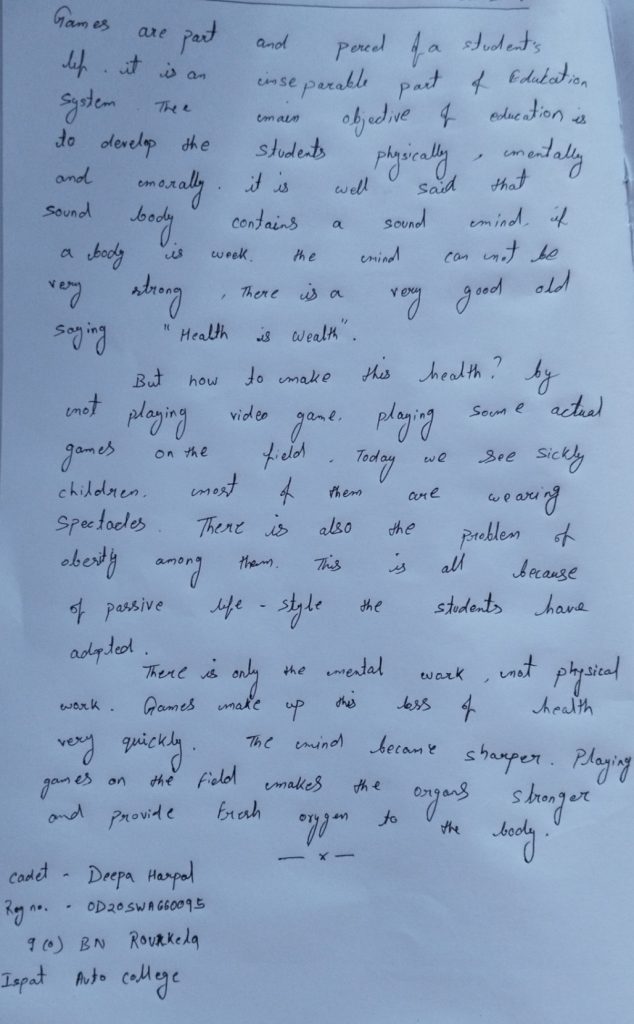 Games are part and percel of a student's
life. it is an inseparable part of Edukation
System. The main objective of education is
to develop the students physically, mentally
and morally. it is well said that
sound body contains a sound mind. if
a body is week. the mind can not be
very strong, There is a very good old
saying "Health is wealth".
But how to make this health? by
not playing video game. playing some actual
games on the field. Today we see sickly
children. most of them are wearing
Spectacles. There is also the problem of
obesity among them. This is all because
of passive life-style the students have
adopted.
There is only the mental work, not physical
work. Games make up this loss of health
very quickly. The mind became sharper. Playing
games on the field makes the organs stronger
and provide fresh oxygen to the body.
— x —
cadet - Deepa Harpal
Reg no. - OD20SWA660095
9 (0) BN Rourkela
Ispat Auto college